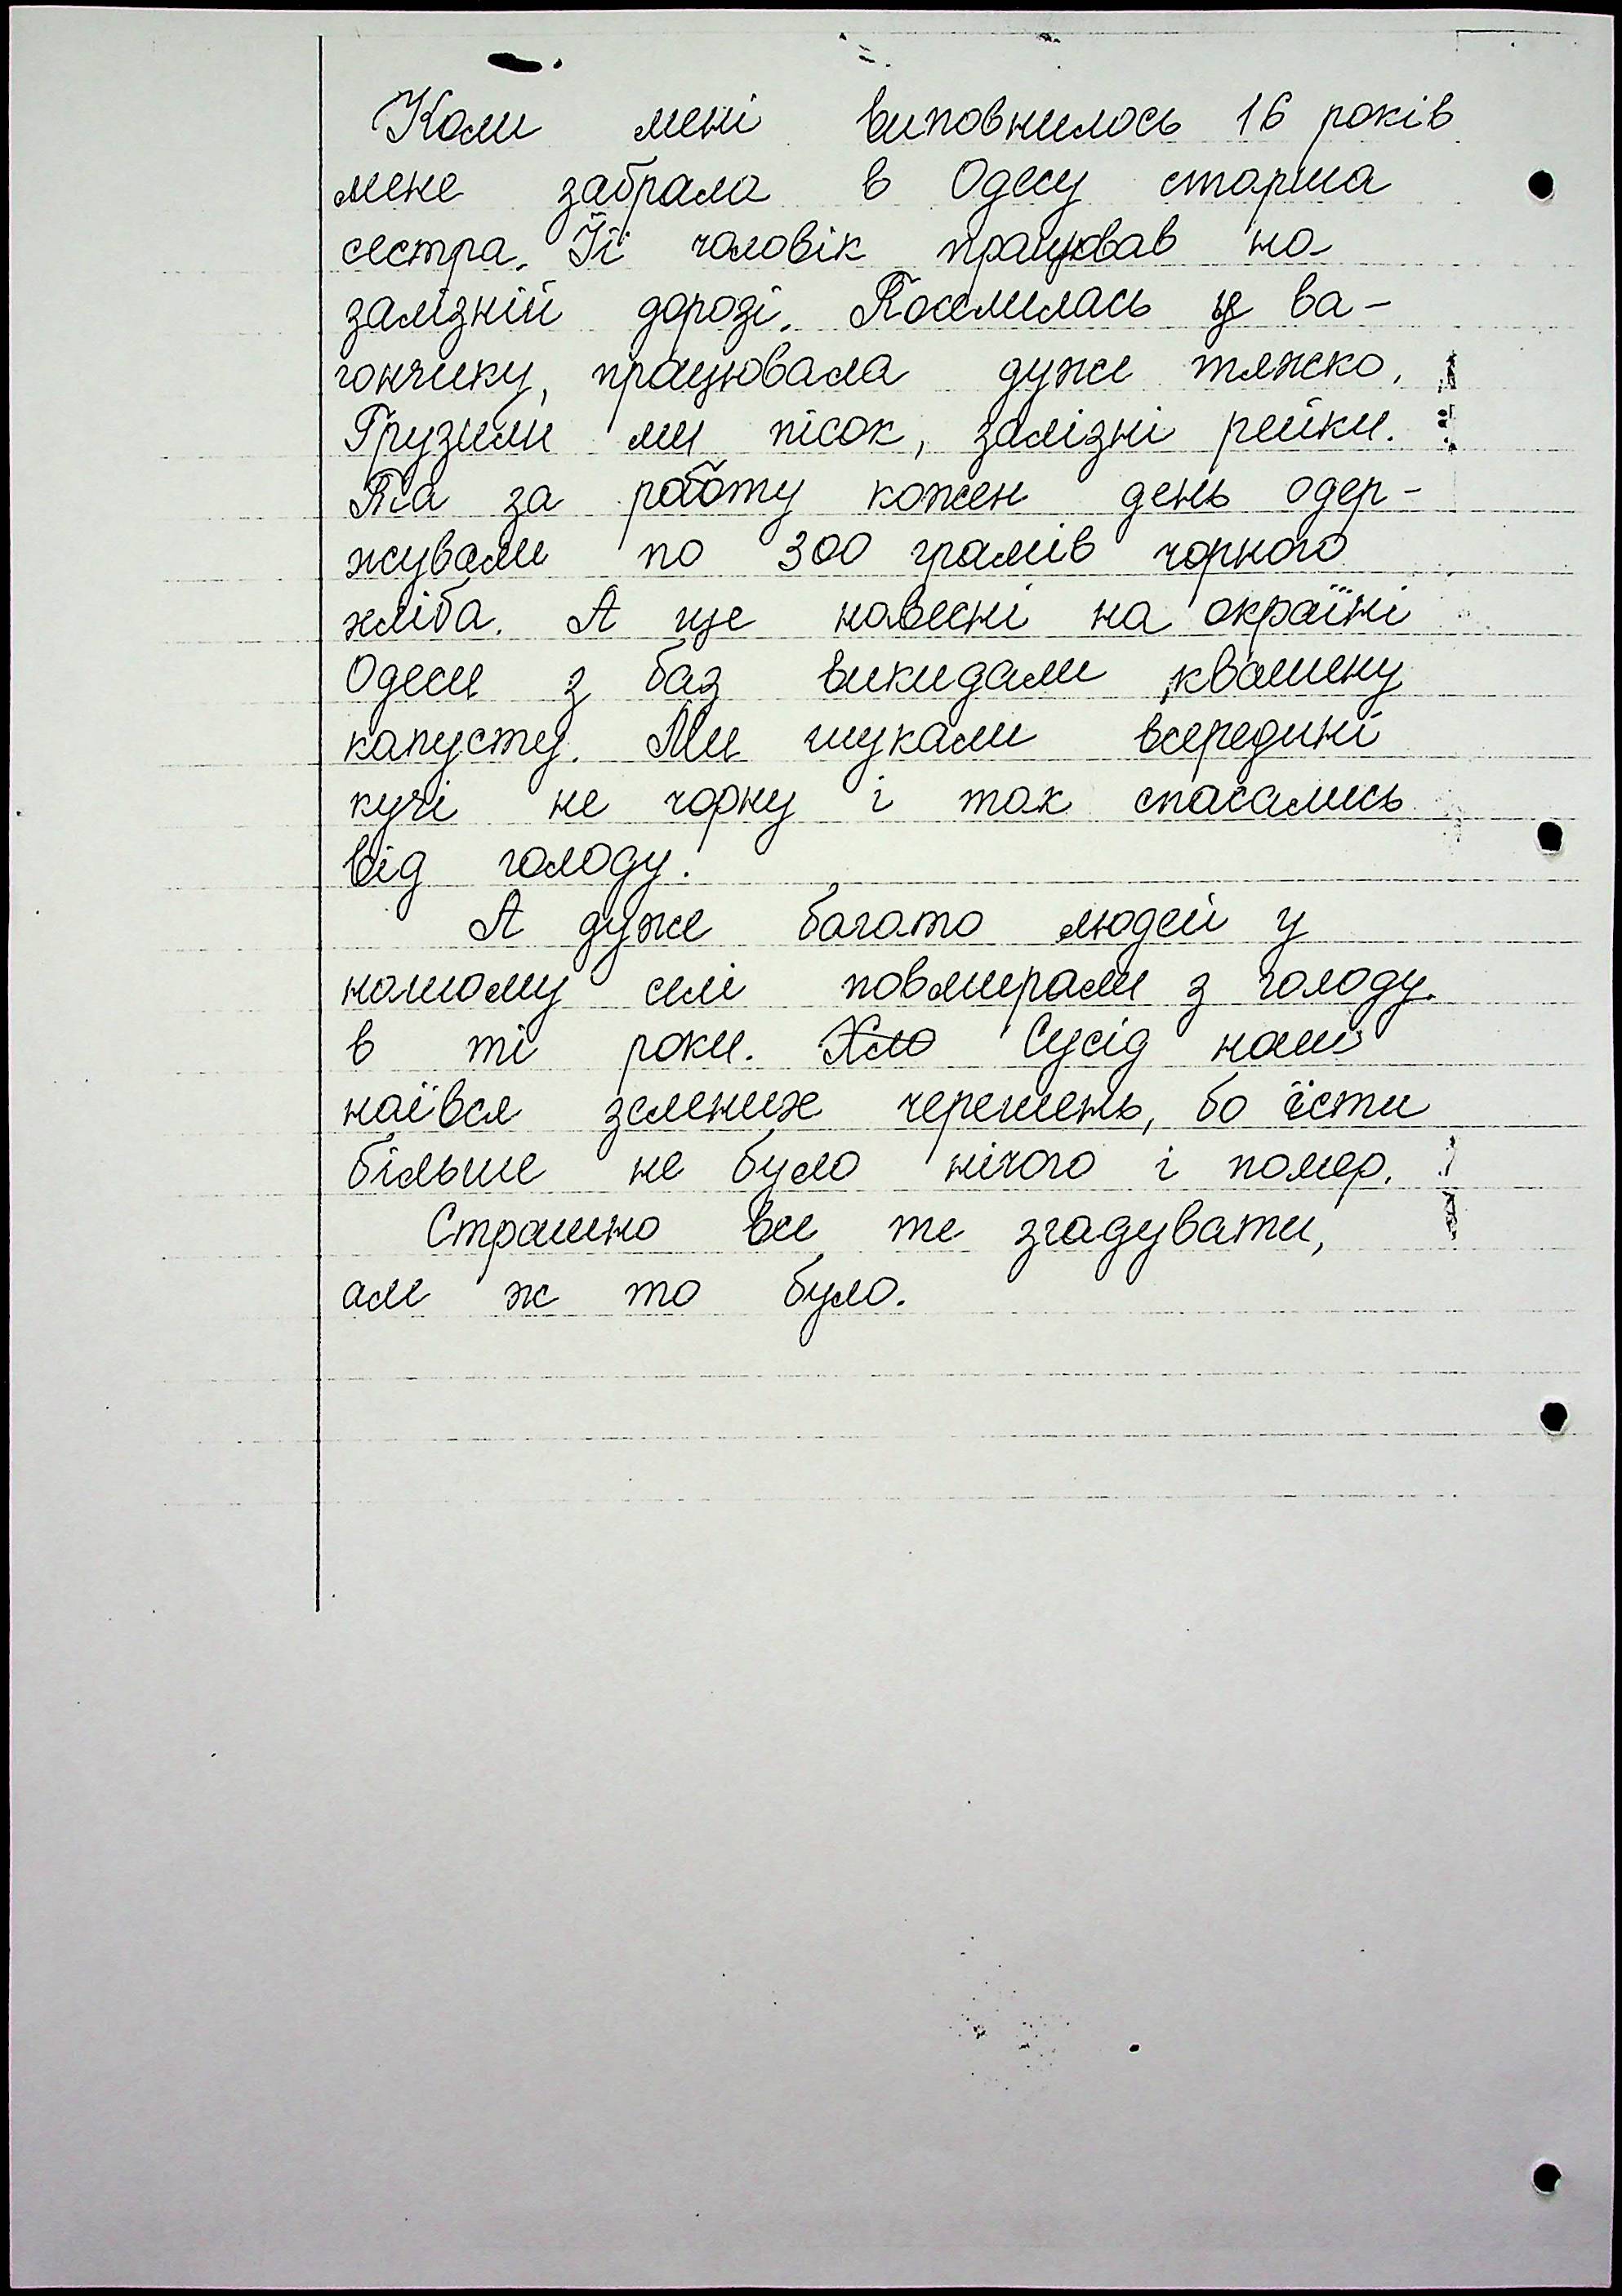 Коли мені виповнилось 16 років
мене забрала в Одесу старша
сестра. Її чоловік працював на
залізній дорозі. Поселилась у ва-
гончику, працювала дуже тяжко.
Грузили ми пісок, залізні рейки.
Та за роботу кожен день одер-
жували по 300 грамів чорного
хліба. А ще навесні на окраїні
Одеси з баз викидали квашену
капусту. Ми шукали всередині
кучі не чорну і так спасались
від голоду.
А дуже багато людей у
нашому селі повмирали з голоду
в ті роки. Хло Сусід наш
наївся зелених черешень, бо їсти
більше не було нічого і помер.
Страшно все те згадувати,
але ж то було.